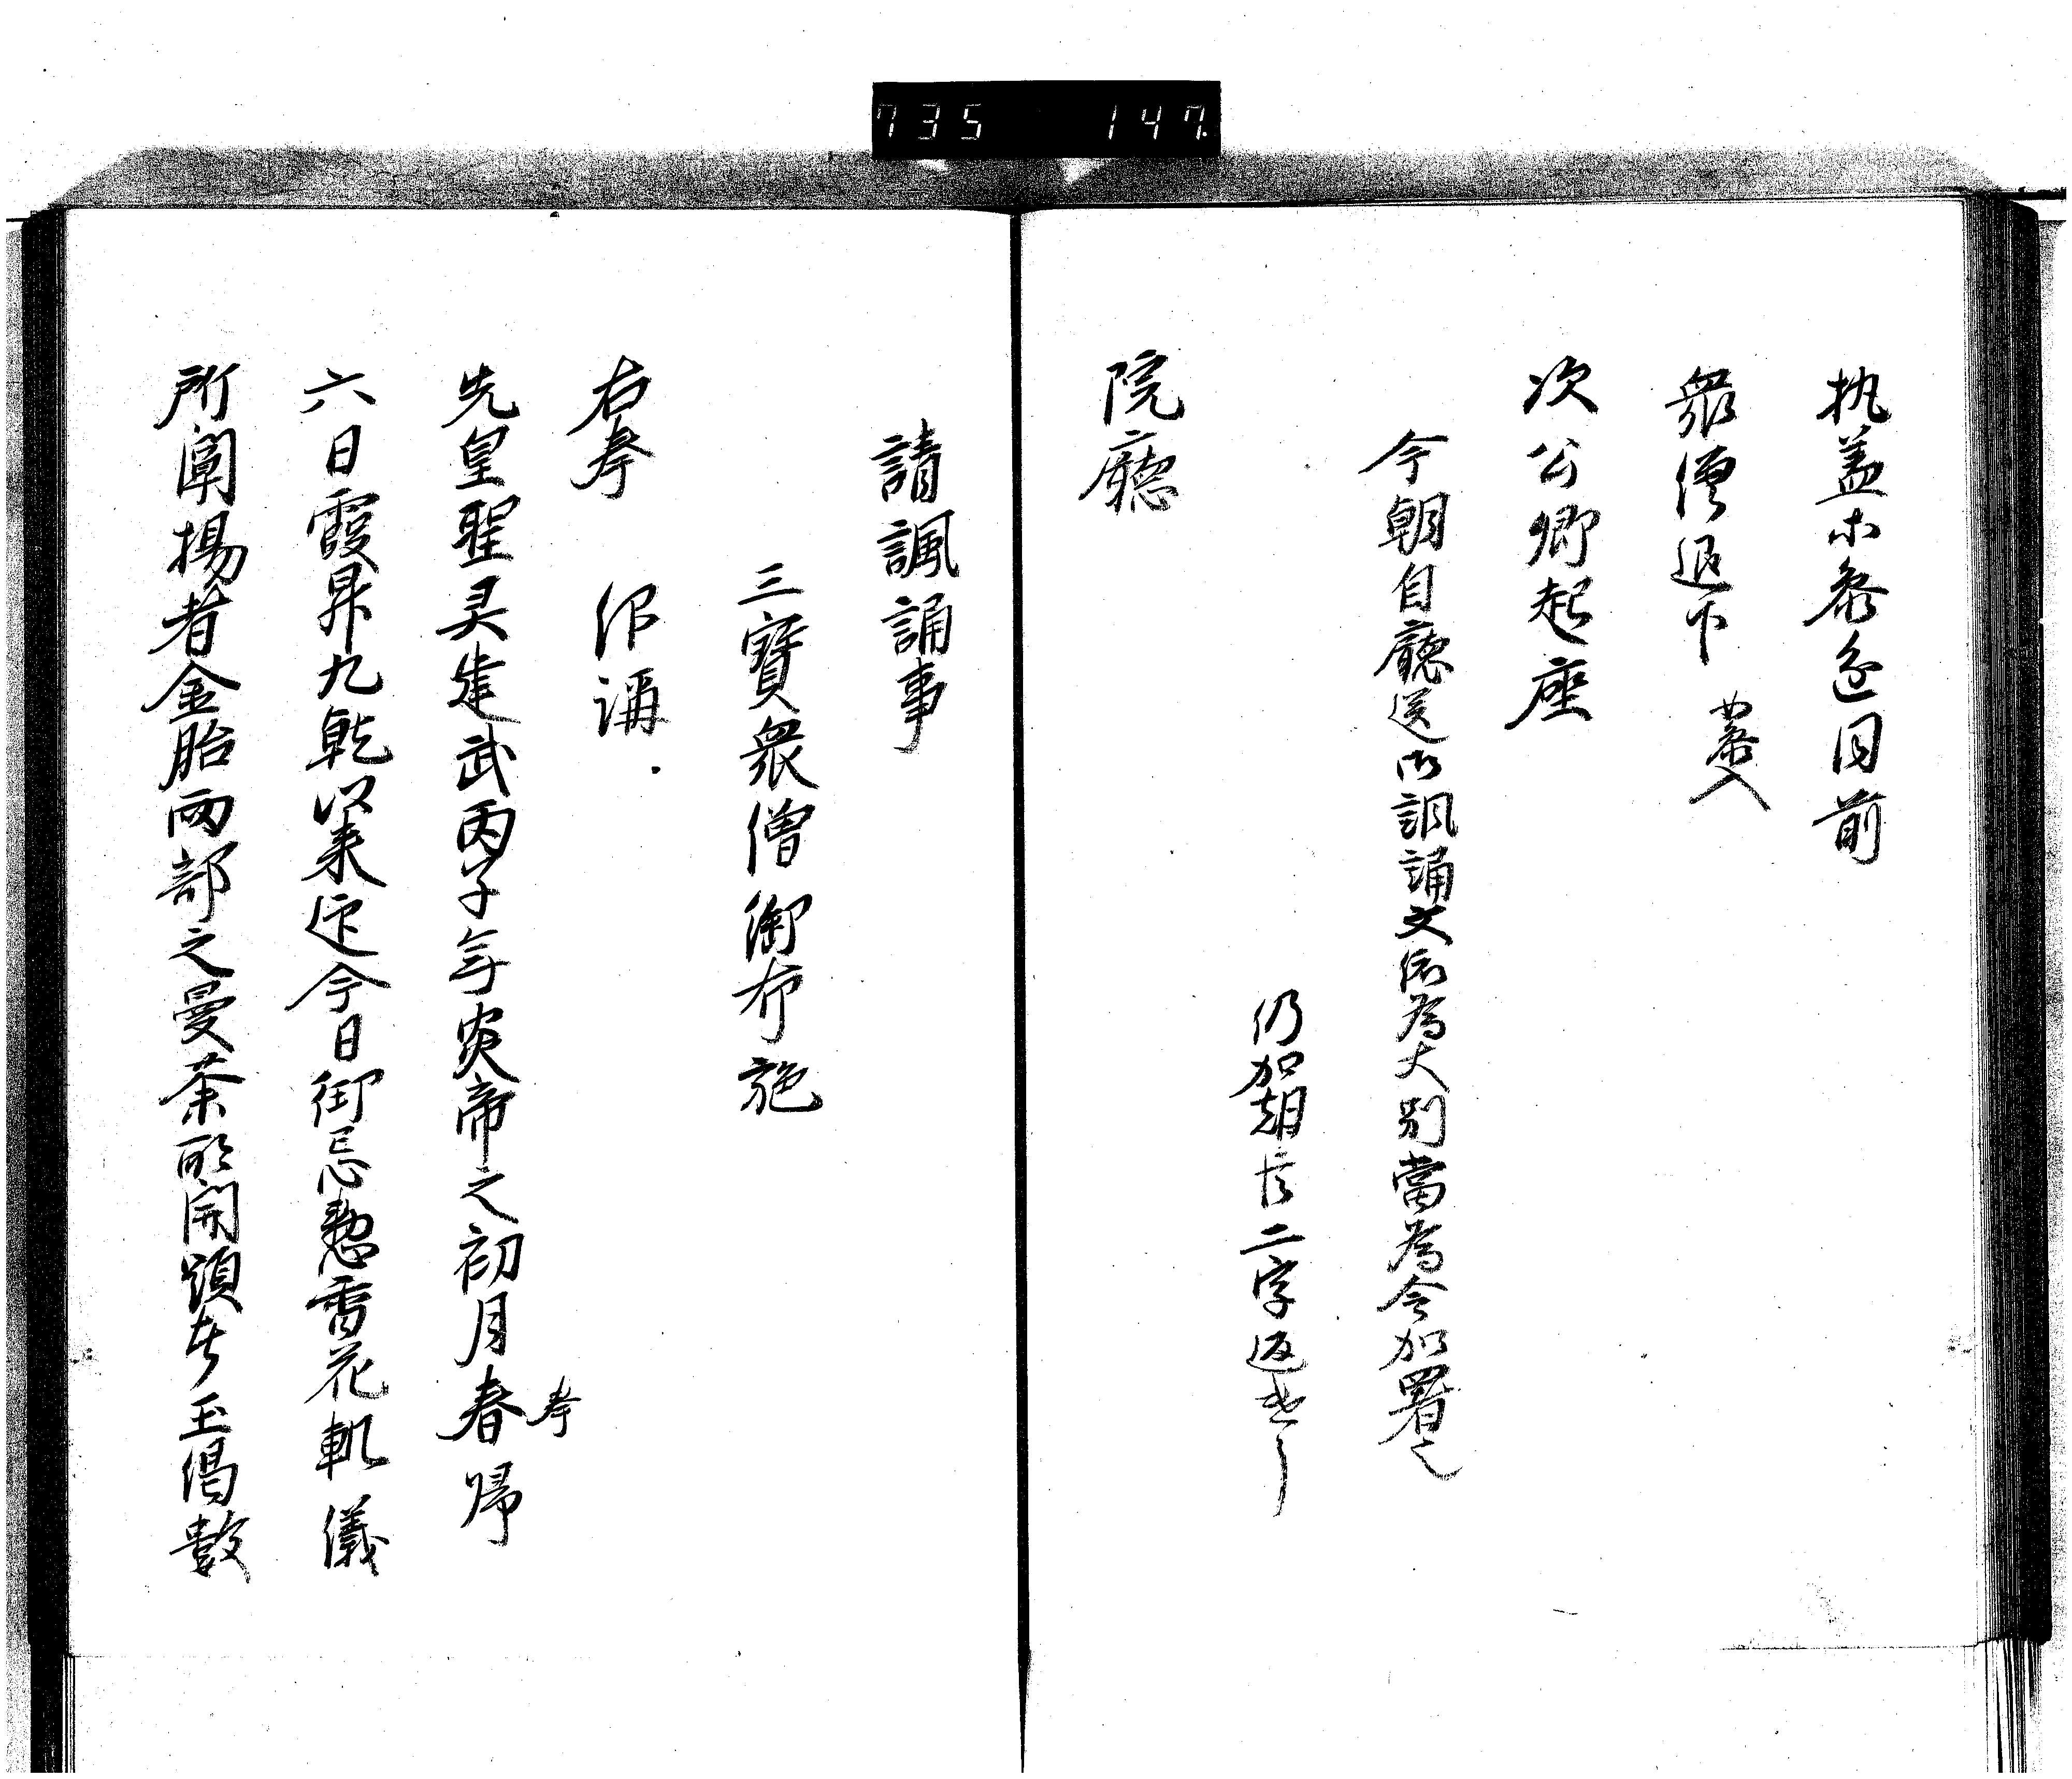 735 147
执蓋等參進同前
衆僧退下 業入
次公卿起座
今朝自廳送御諷誦文依為大別當為令加署之
仍加朝臣二字返遣了
院廳
請諷誦事
三寶衆僧御布施
右奉 仰稱
先皇聖灵建武丙子年炎帝之初月春歸
奉
六日霞昇九乾以来迄今日御忌慙雪花軌儀
所闡揚者金胎兩部之曼荼所開題者玉偈數